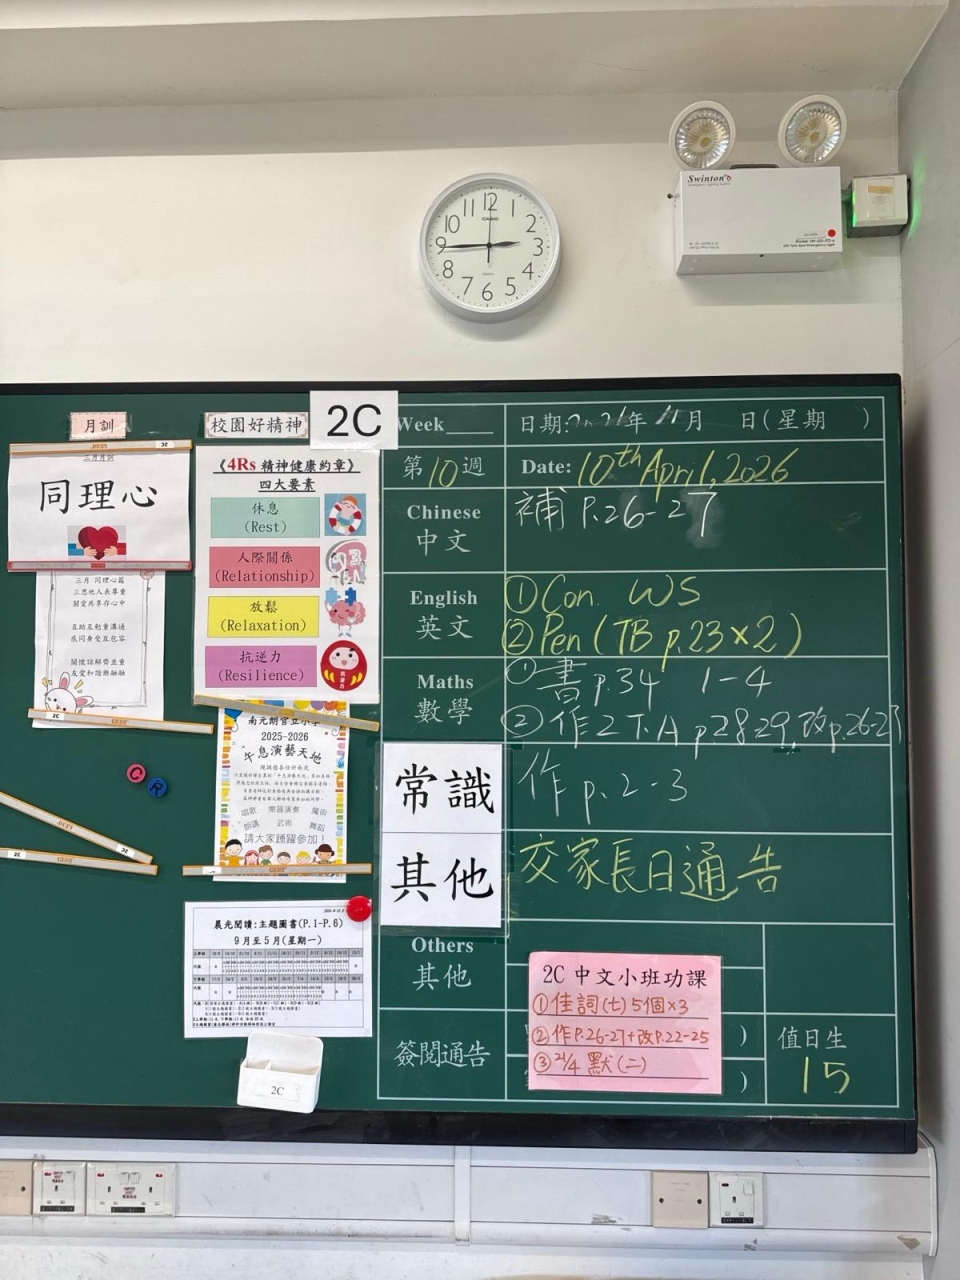 12
1
2
3
4
5
6
7
8
9
10
11
CASIO
Swinton
月訓
三月月訓
同理心
三月 同理心篇
三思他人表尊重
關愛共享存心中
互助互勉重溝通
感同身受互包容
關懷諒解齊並重
友愛和諧樂融融
2C
校園好精神
2C
《4Rs 精神健康約章》
四大要素
休息
(Rest)
人際關係
(Relationship)
放鬆
(Relaxation)
抗逆力
(Resilience)
南元朗官立小學
2025-2026
午息演藝天地
唱歌 樂器演奏 魔術
朗誦 武術 舞蹈
請大家踴躍參加!
C
R
晨光閱讀:主題圖書(P.1-P.6)
9月至5月(星期一)
2C
Week
日期:2026年 月 日(星期 )
第10週
Date: 10th April, 2026
Chinese
中文
補 P.26-27
English
英文
①Con. WS
②Pen (TB p.23×2)
Maths
數學
① 書 p.34 1-4
② 作2T.A p28-29,改p.26-27
常識
作 p.2-3
其他
交家長日通告
Others
其他
簽閱通告
2C 中文小班功課
①佳詞(七)5個×3
②作P.26-27+改P.22-25
③21/4 默(二)
)
)
值日生
15